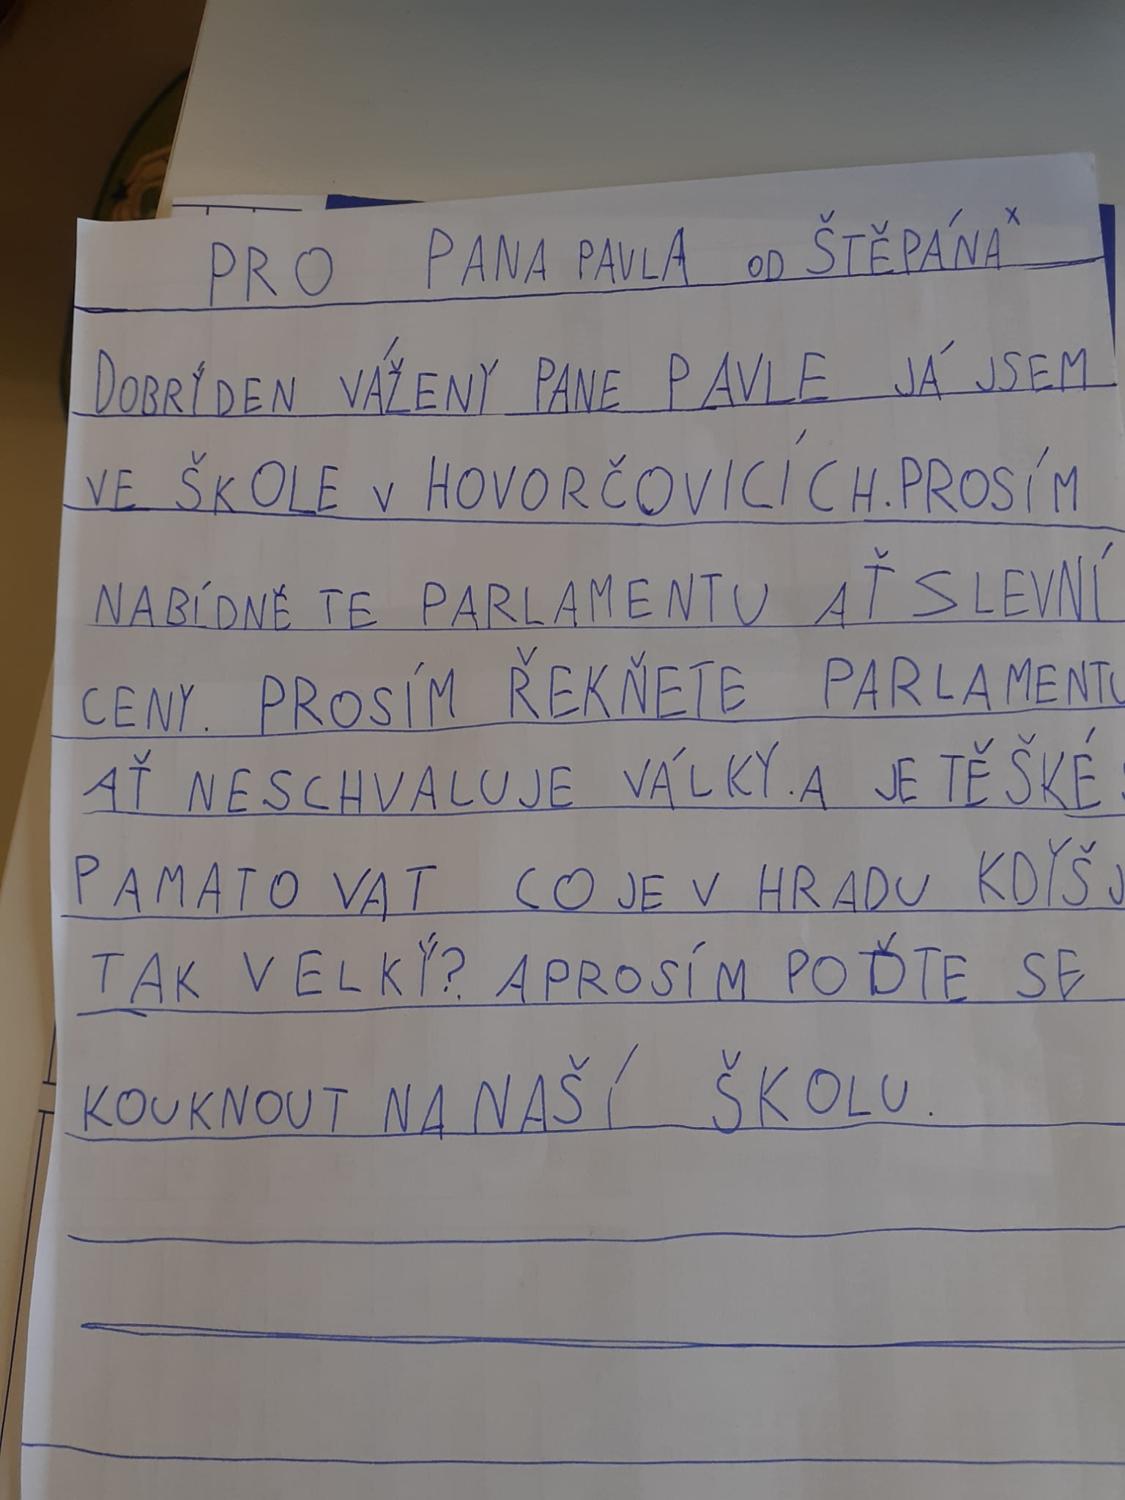 PRO PANA PAVLA OD ŠTĚPÁNA x
DOBRÍDEN VÁŽENÝ PANE PAVLE JÁ JSEM
VE ŠKOLE V HOVORČOVICÍCH. PROSÍM
NABÍDNĚ TE PARLAMENTU AŤ SLEVNÍ
CENY. PROSÍM ŘEKŇETE PARLAMENTU
AŤ NESCHVALUJE VÁLKY. A JE TĚŠKÉ
PAMATOVAT CO JE V HRADU KDYŠ
TAK VELKÝ? APROSÍM POĎTE SE
KOUKNOUT NA NAŠÍ ŠKOLU.